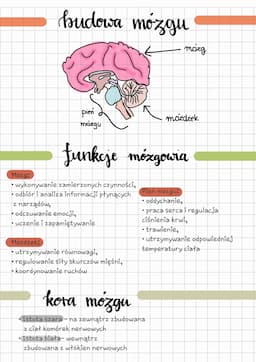 budowa mózgu
mózg
pień
mózgu
móżdżek
funkcje mózgowia
Mózg:
• wykonywanie zamierzonych czynności,
• odbiór i analiza informacji płynących
z narządów,
• odczuwanie emocji,
• uczenie i zapamiętywanie
Móżdżek:
• utrzymywanie równowagi,
• regulowanie siły skurczów mięśni,
• koordynowanie ruchów
Pień mózgu:
• oddychanie,
• praca serca i regulacja
ciśnienia krwi,
• trawienie,
• utrzymywanie odpowiedniej
temperatury ciała
kora mózgu
• istota szara - na zewnątrz zbudowana
z ciał komórek nerwowych
• istota biała - wewnątrz
zbudowana z włókien nerwowych